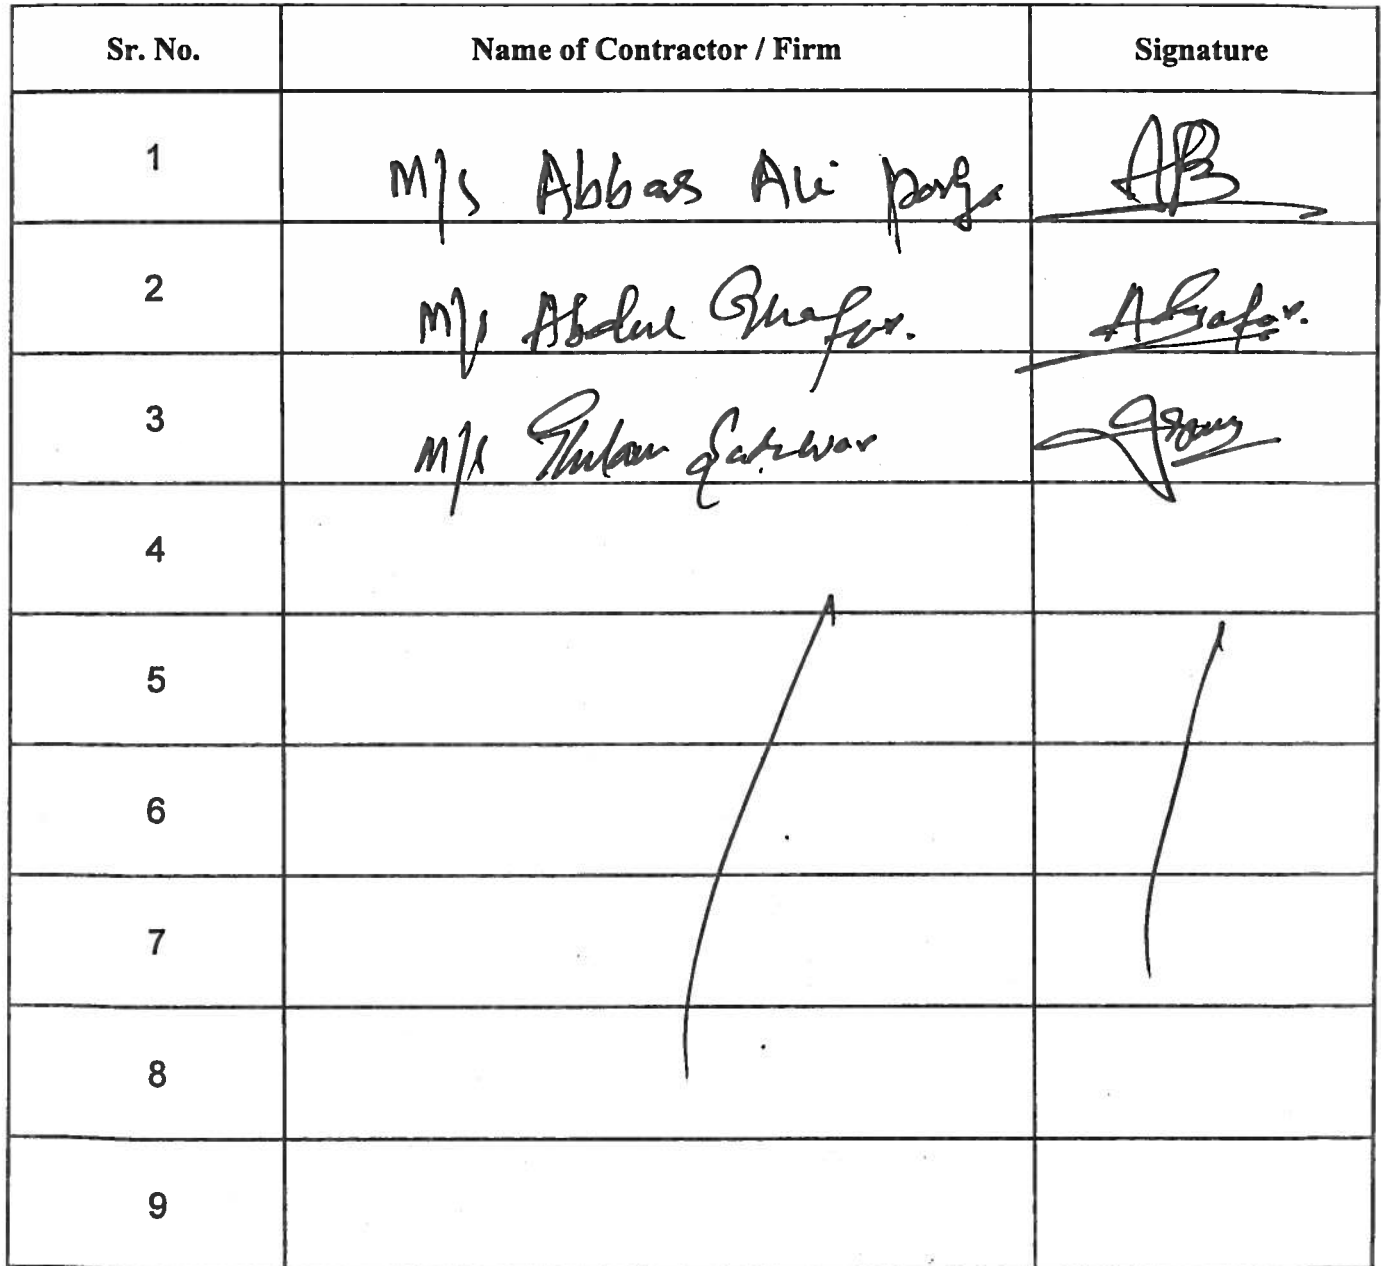 Sr. No. Name of Contractor / Firm Signature
1 M/s Abbas Ali
2 M/s Abdul Ghafar. A Gafar.
3 M/s Ghulam
4
5
6
7
8
9